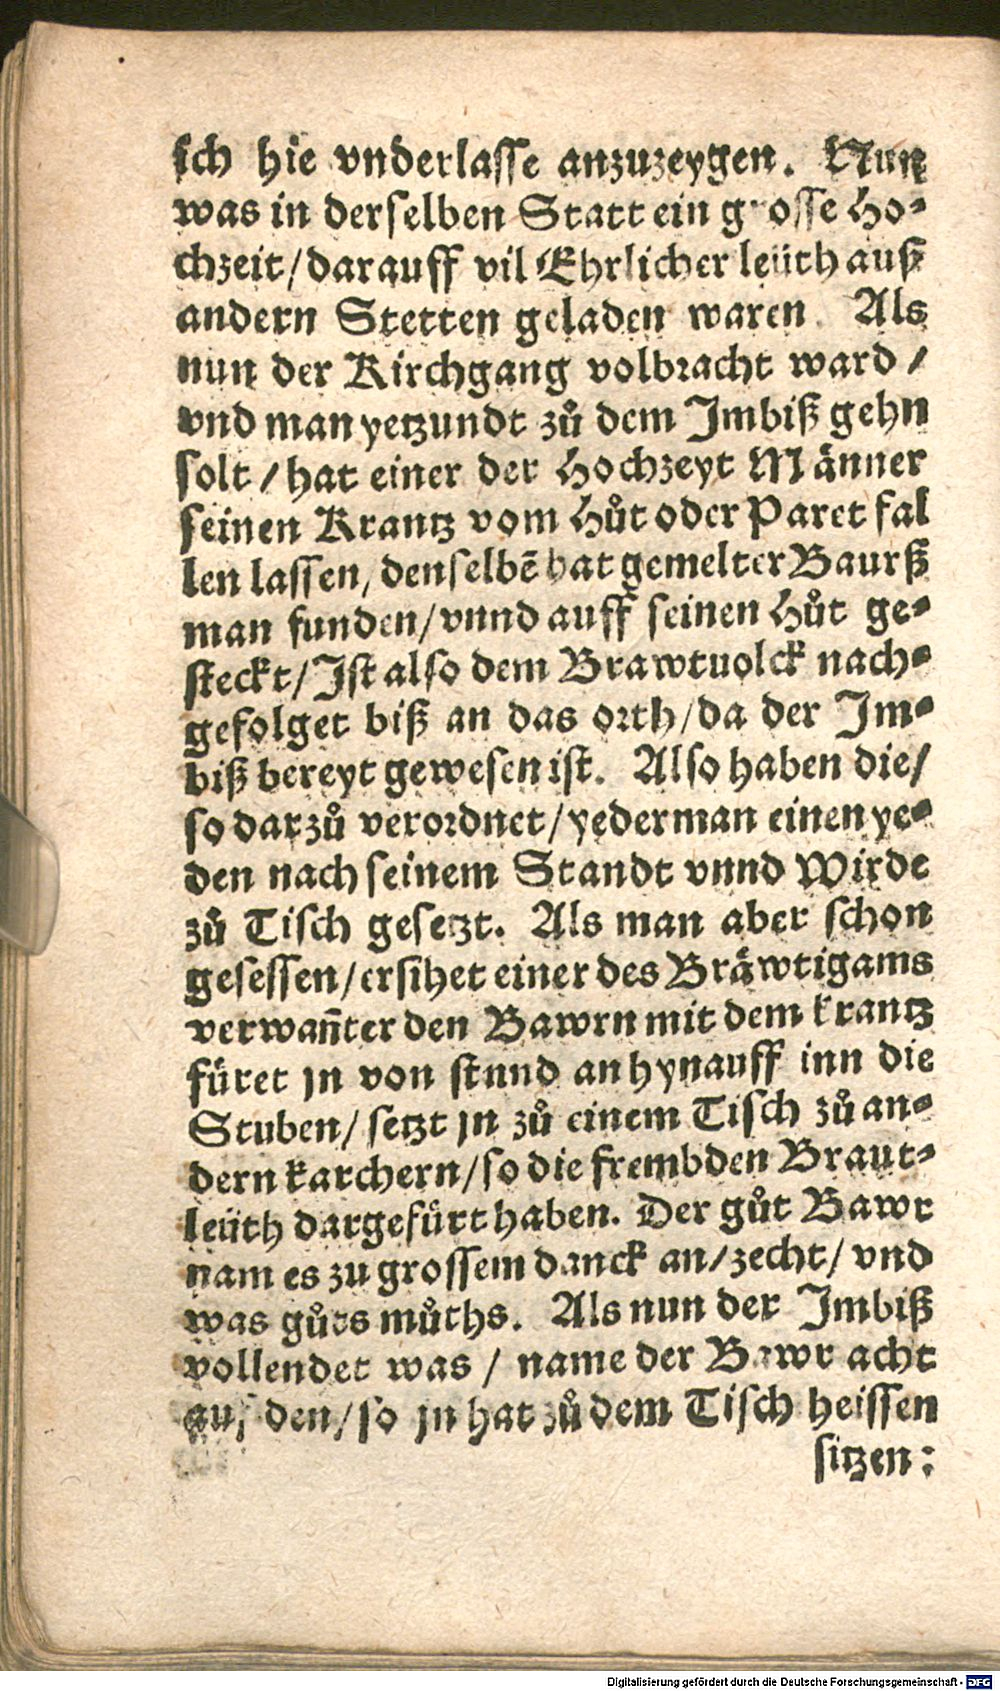 ich hie vnderlasse anzuzeygen. Nun
was in derselben Statt ein grosse Ho⸗
chzeit/darauff vil Ehrlicher leüth auß
andern Stetten geladen waren. Als
nun der Kirchgang volbracht ward /
vnd man yetzundt zů dem Jmbiß gehn
solt / hat einer der Hochzeyt Männer
seinen Krantz vom Hůt oder Paret fal
len lassen, denselbē hat gemelter Baurß
man funden/vnnd auff seinen Hůt ge⸗
steckt/Jst also dem Brawtuolck nach⸗
gefolget biß an das orth/da der Jm⸗
biß bereyt gewesen ist. Also haben die/
so darzů verordnet/yederman einen ye⸗
den nach seinem Standt vnnd Wirde
zů Tisch gesetzt. Als man aber schon
gesessen/ersihet einer des Bräwtigams
verwañter den Bawrn mit dem krantz
füret jn von stund an hynauff inn die
Stuben/ setzt jn zů einem Tisch zů an⸗
dern karchern/so die frembden Braut⸗
leüth dargefürt haben. Der gůt Bawr
nam es zu grossem danck an/zecht/ vnd
was gůts můths. Als nun der Jmbiß
vollendet was / name der Bawr acht
auf den/so jn hat zů dem Tisch heissen
sitzen:
Digitalisierung gefördert durch die Deutsche Forschungsgemeinschaft - DFG